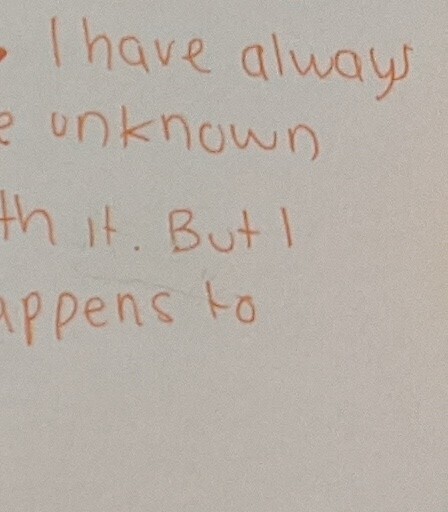 . I have always
e unknown
th it. But I
appens to